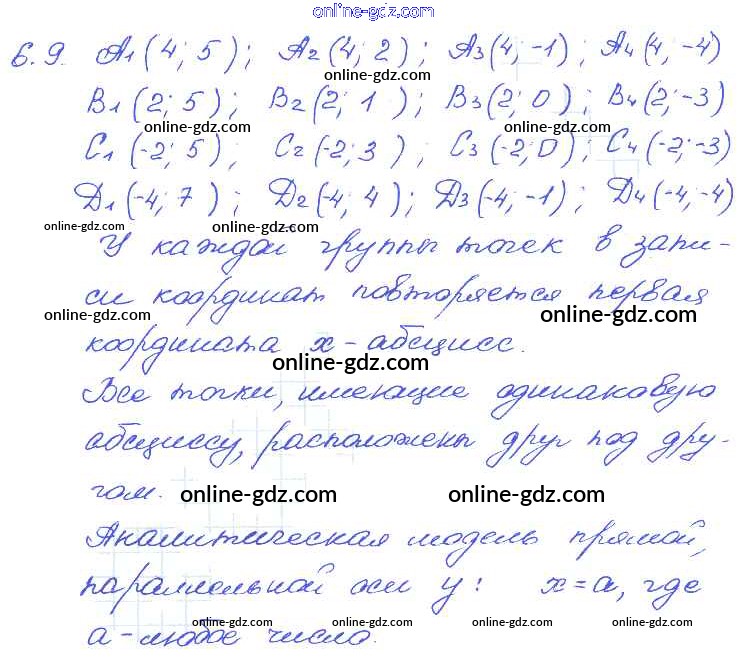 online-gdz.com
6.9. A1(4; 5); A2(4; 2); A3(4; -1); A4(4, -4)
online-gdz.com
B1(2; 5); B2(2; 1); B3(2; 0); B4(2; -3)
online-gdz.com online-gdz.com
C1(-2; 5); C2(-2; 3); C3(-2; 0); C4(-2; -3)
online-gdz.com
Д1(-4; 7); Д2(-4; 4); Д3(-4; -1); Д4(-4; -4)
online-gdz.com online-gdz.com online-gdz.com
У каждой группы точек в запи-
си координат повторяется первая
online-gdz.com online-gdz.com
координата x - абсцисс.
online-gdz.com
Все точки, имеющие одинаковую
абсциссу, расположены друг под дру-
гом.
online-gdz.com online-gdz.com
Аналитическая модель прямой,
параллельной оси y: x=a, где
online-gdz.com online-gdz.com online-gdz.com
a - любое число.